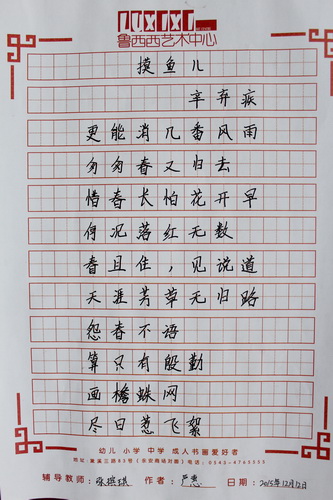 LUXIXI
鲁西西艺术中心
摸鱼儿
辛弃疾
更能消几番风雨
匆匆春又归去
惜春长怕花开早
何况落红无数
春且住，见说道
天涯芳草无归路
怨春不语
算只有殷勤
画檐蛛网
尽日惹飞絮
幼儿 小学 中学 成人书画爱好者
辅导教师： 作者：严惠 日期：2015年12月12日